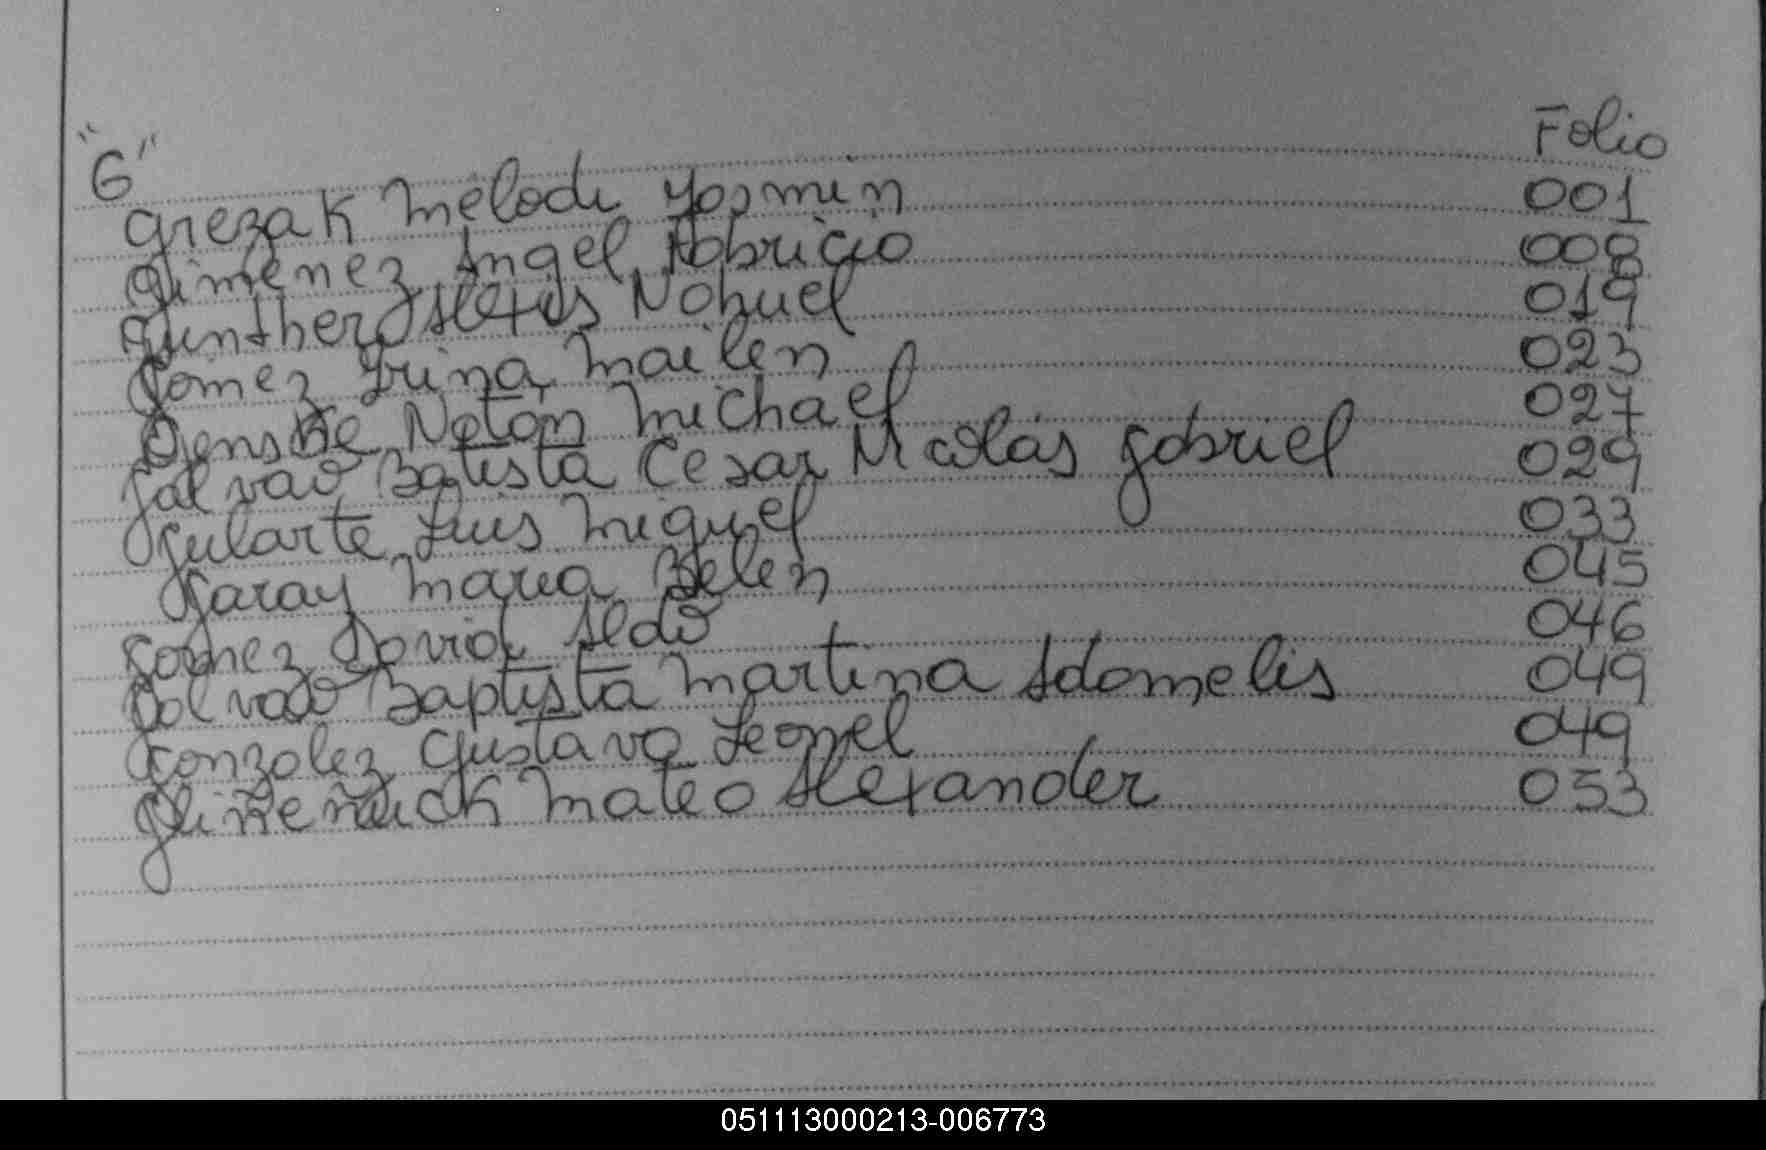 "G" Folio
Grezak Melodi Yasmin 001
Gimenez Angel Fabricio 008
Gunther Alexis Nahuel 019
Gomez Irina Mailen 023
Genske Natan Michael 027
Galvao Batista Cesar Nicolás Gabriel 029
Gularte Luis Miguel 033
Garay Maria Belen 045
Gomez David Aldo 046
Galvao Baptista Martina Adamelis 049
Gonzalez Gustavo Leonel 049
Mateo Alexander 053
051113000213-006773